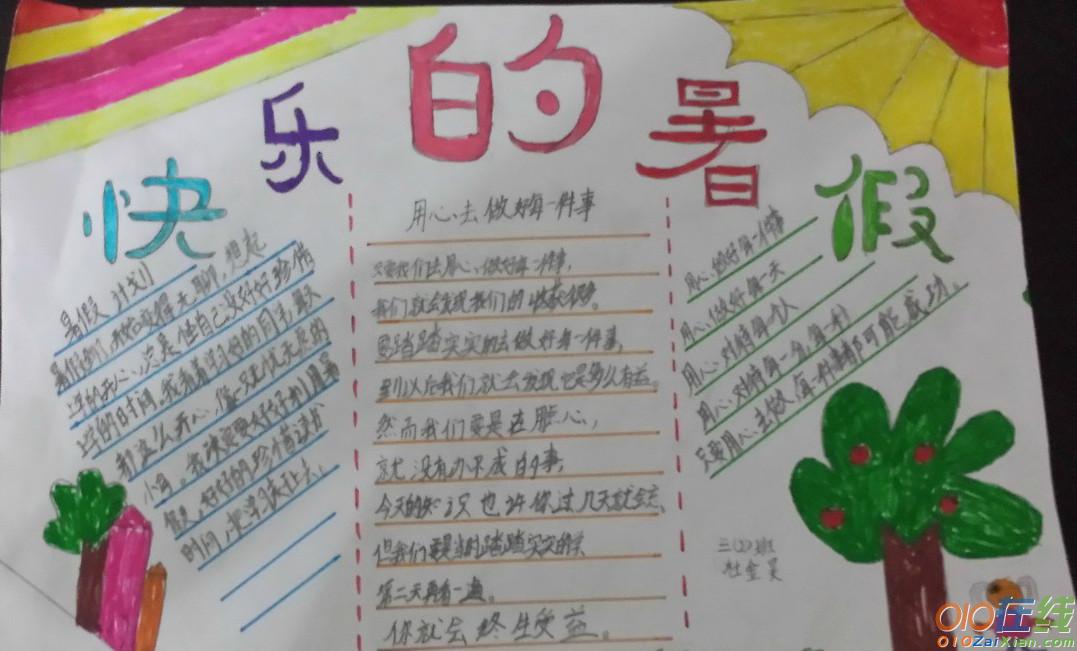 快乐的暑假
暑假计划
暑假到了,我变得无聊,想起
上学的开心,总是怪自己没好好珍惜
上学的时间。我有着说不好的同书
到这么开心,像一只无忧无虑的
小鸟。我决定要好好利用暑
假,好好的珍惜读书
时间,把学习赶上去。
用心去做好每一件事
只要我们去用心做好每一件事,
我们就会发现我们的收获很多。
要踏踏实实的去做好每一件事,
到以后我们就会发现它是多么有益。
然而我们要是在用心,
就没有办不成的事,
今天的知识也许你过几天就会忘,
但我们要是踏踏实实的
第二天再看一遍。
你就会终生受益。
用心做好每一件事
用心做好每一天
用心对待每一人
用心对待每一名,每一利
只要用心去做,每一件事都可能成功。
三(2)班
杜金昊
010在线
010ZaiXian.com